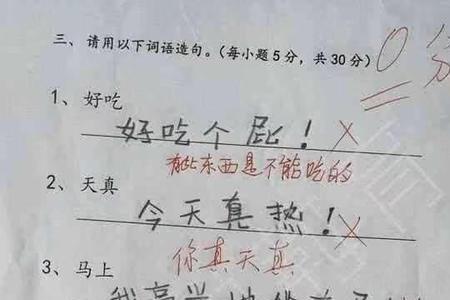 三、请用以下词语造句。(每小题5分，共30分) 0分
1、好吃
好吃个屁！
有些东西是不能吃的
2、天真
今天真热！
你真天真
3、马上
我高兴地